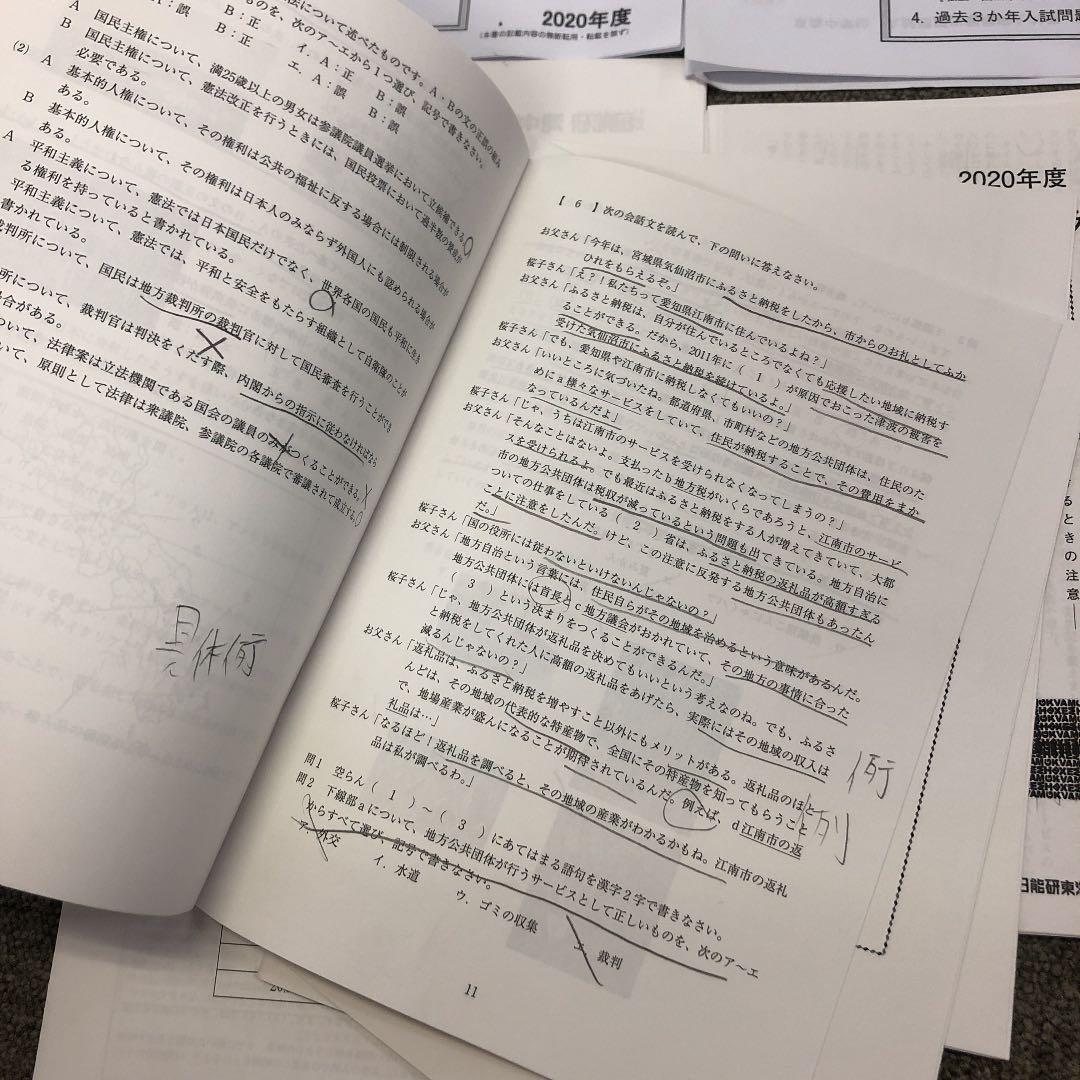 2020年度
(本書の記載内容の無断転用・転載を禁ず)
4. 過去3か年入試問題
2020年度
法について述べたものです。A・Bの文の正誤の組み
ものを、次のア～エから1つ選び、記号で書きなさい。
A：誤 B：正 イ．A：正 B：誤
B：正 エ．A：誤 B：誤
A 国民主権について、満25歳以上の男女は参議院議員選挙において立候補できる。
B 国民主権について、憲法改正を行うときには、国民投票において過半数の賛成が
必要である。
(2)
A 基本的人権について、その権利は公共の福祉に反する場合には制限される場合が
ある。
B 基本的人権について、その権利は日本人のみならず外国人にも認められる場合が
ある。
A 平和主義について、憲法では日本国民だけでなく、世界各国の国民も平和に生き
る権利を持っていると書かれている。
平和主義について、憲法では、平和と安全をもたらす組織として自衛隊のことが
書かれている。
裁判所について、国民は地方裁判所の裁判官に対して国民審査を行うことができ
所について、裁判官は判決をくだす際、内閣からの指示に従わなければなら
場合がある。
ついて、法律案は立法機関である国会の議員のみがつくることができる。
いて、原則として法律は衆議院、参議院の各議院で審議されて成立する。
具体例
【 6 】次の会話文を読んで、下の問いに答えなさい。
お父さん「今年は、宮城県気仙沼市にふるさと納税をしたから、市からのお礼としてふか
ひれをもらえるぞ。」
桜子さん「え？！私たちって愛知県江南市に住んでいるよね？」
お父さん「ふるさと納税は、自分が住んでいるところでなくても応援したい地域に納税す
ることができる。だから、2011年に（ 1 ）が原因でおこった津波の被害を
受けた気仙沼市にふるさと納税を続けているよ。」
桜子さん「でも、愛知県や江南市に納税しなくてもいいの？」
お父さん「いいところに気づいたね。都道府県、市町村などの地方公共団体は、住民のた
めにa様々なサービスをしていて、住民が納税することで、その費用をまか
なっているんだよ」
桜子さん「じゃ、うちは江南市のサービスを受けられなくなってしまうの？」
お父さん「そんなことはないよ。支払ったb地方税がいくらであろうと、江南市のサービ
スを受けられるよ。でも最近はふるさと納税をする人が増えてきていて、大都
市の地方公共団体は税収が減っているという問題も出てきている。地方自治に
ついての仕事をしている（ 2 ）省は、ふるさと納税の返礼品が高額すぎる
ことに注意をしたんだ。けど、この注意に反発する地方公共団体もあったん
だ。」
桜子さん「国の役所には従わないといけないんじゃないの？」
お父さん「地方自治という言葉には、住民自らがその地域を治めるという意味があるんだ。
地方公共団体には首長とc地方議会がおかれていて、その地方の事情に合った
（ 3 ）という決まりをつくることができるんだ。」
桜子さん「じゃ、地方公共団体が返礼品を決めてもいいという考えなのね。でも、ふるさ
と納税をしてくれた人に高額の返礼品をあげたら、実際にはその地域の収入は
減るんじゃないの？」
お父さん「返礼品は、ふるさと納税を増やすこと以外にもメリットがある。返礼品のほと
んどは、その地域の代表的な特産物で、全国にその特産物を知ってもらうこと
で、地場産業が盛んになることが期待されているんだ。例えば、d江南市の返
礼品は…」
桜子さん「なるほど！返礼品を調べると、その地域の産業がわかるかもね。江南市の返礼
品は私が調べるわ。」
問1 空らん（ 1 ）～（ 3 ）にあてはまる語句を漢字2字で書きなさい。
問2 下線部aについて、地方公共団体が行うサービスとして正しいものを、次のア～エ
からすべて選び、記号で書きなさい。
ア．外交 イ．水道 ウ．ゴミの収集 エ．裁判
例
例
11
るときの注意
日能研東海